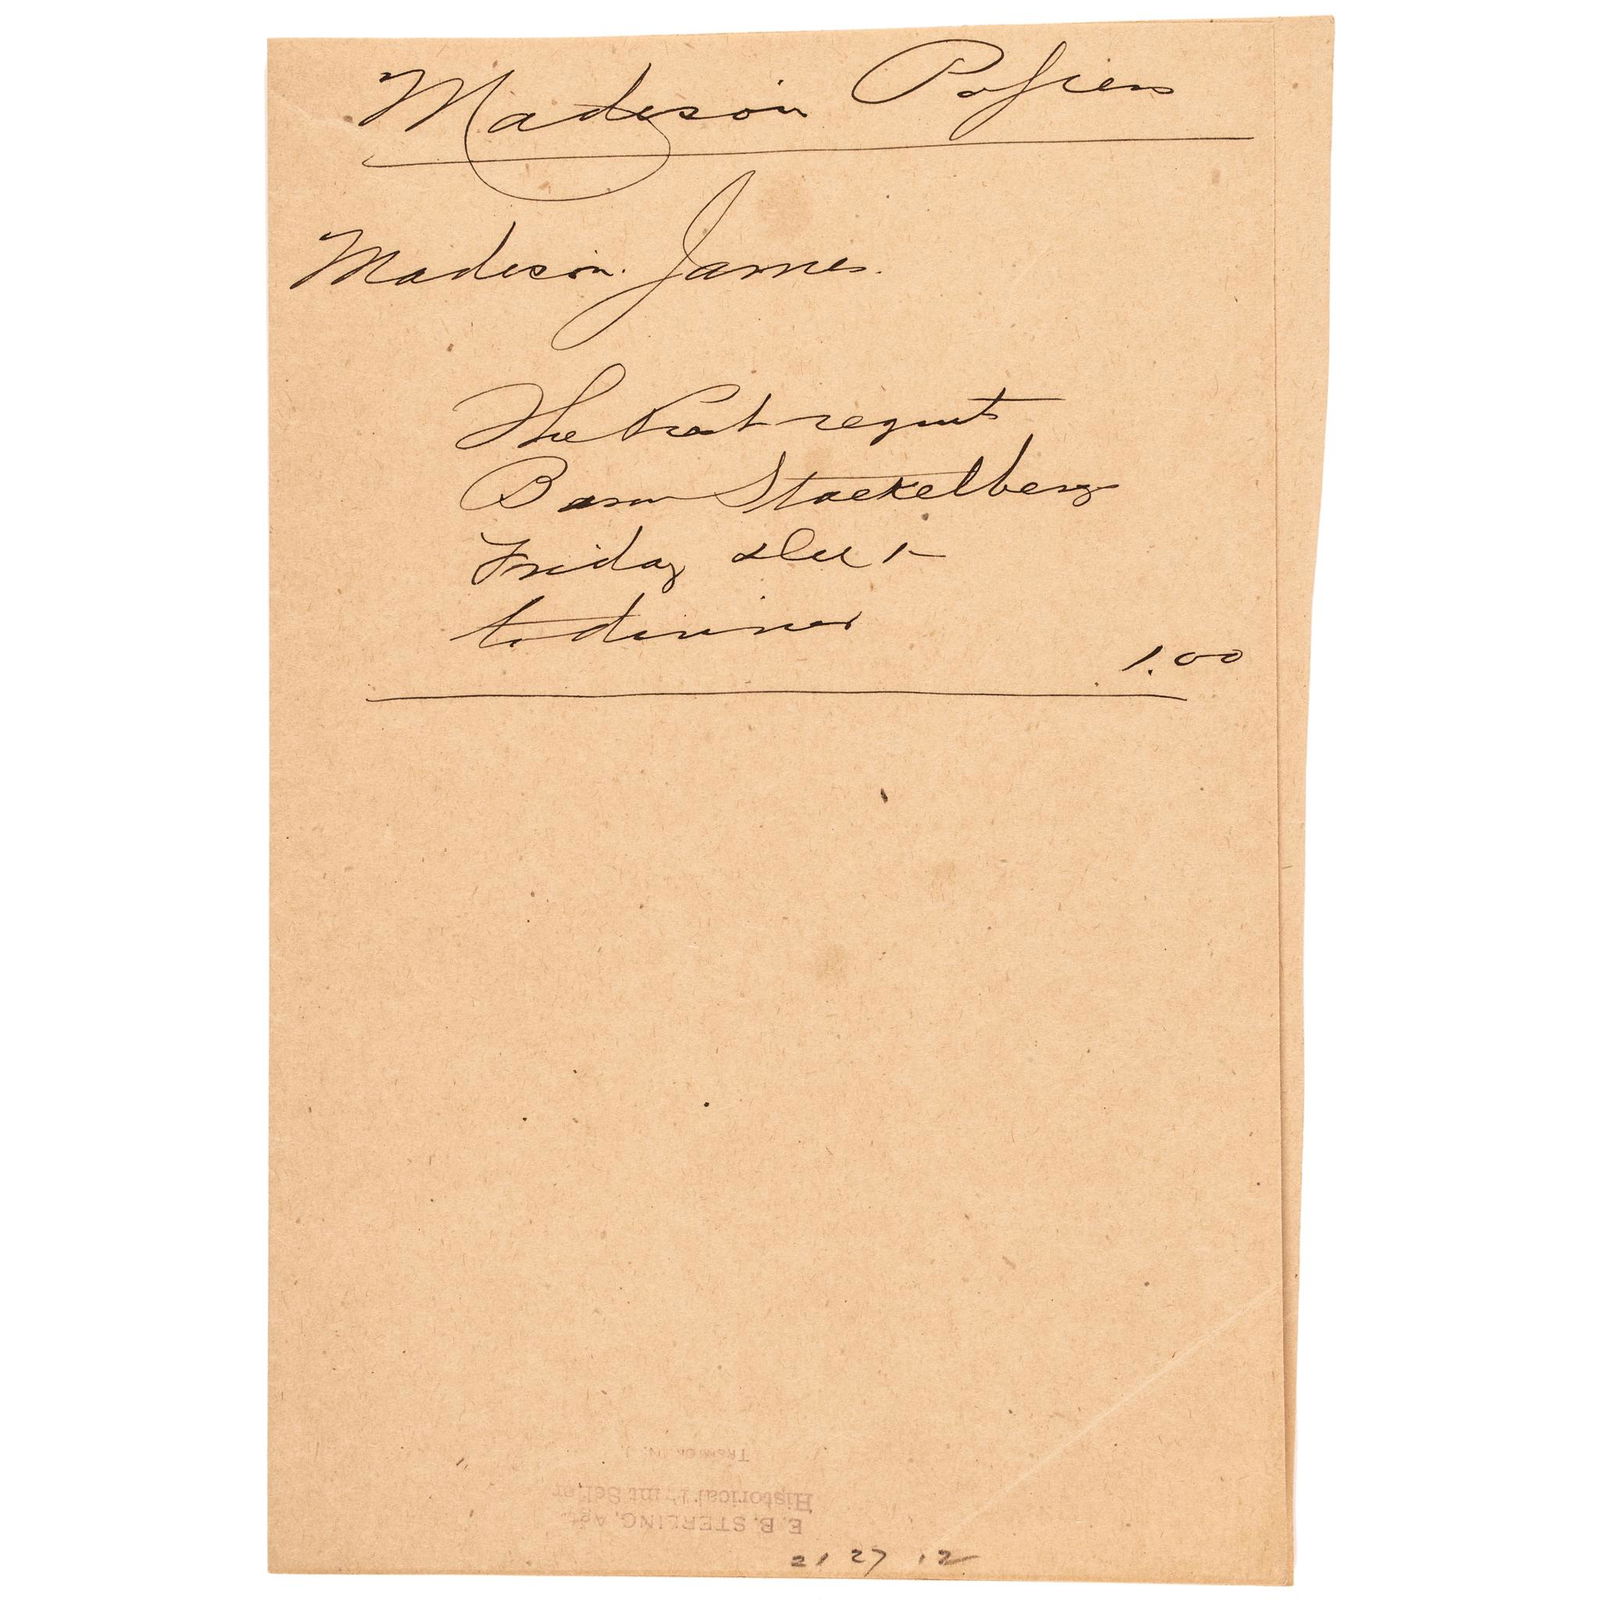 Madison Papers
Madison. James.
The Prest requests
Baron Stackelberg
Friday Dec 1
to dinner
1.00
Trenton N. J.
Historical Print Seller
E. B. STERLING, Agt.
2/ 27 12